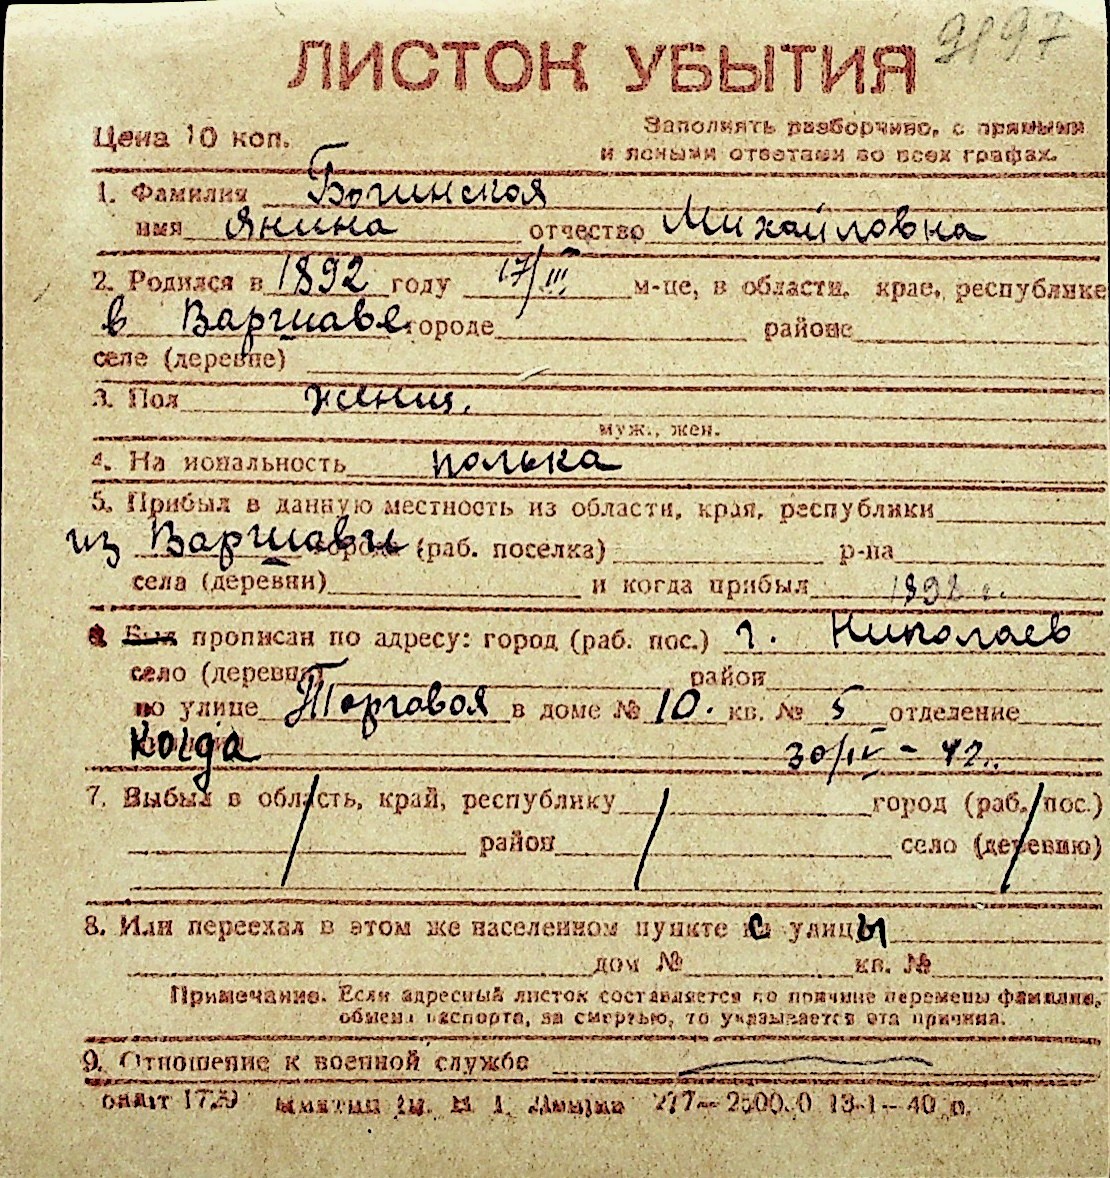 9197
ЛИСТОК УБЫТИЯ
Цена 10 коп.
Заполнять разборчиво, с прямыми
и ясными ответами во всех графах.
1. Фамилия Богинская
имя Янина отчество Михайловна
2. Родился в 1892 году 17/III м-це, в области, крае, республике
в Варшаве городе районе
селе (деревне)
3. Пол женщ.
муж., жен.
4. На иональность полька
5. Прибыл в данную местность из области, края, республики
из Варшавы города (раб. поселка) р-на
села (деревни) и когда прибыл 1892 г.
Был прописан по адресу: город (раб. пос.) г. Николаев
село (деревня) район
по улице Торговая в доме № 10. кв. № 5 отделение
Когда 30/IV - 42.
7. Выбыл в область, край, республику город (раб. пос.)
район село (деревню)
8. Или переехал в этом же населенном пункте с улицы
дом № кв. №
Примечание. Если адресный листок составляется по причине перемены фамилии,
обмена паспорта, за смертью, то указывается эта причина.
9. Отношение к военной службе
13-1-40 р.